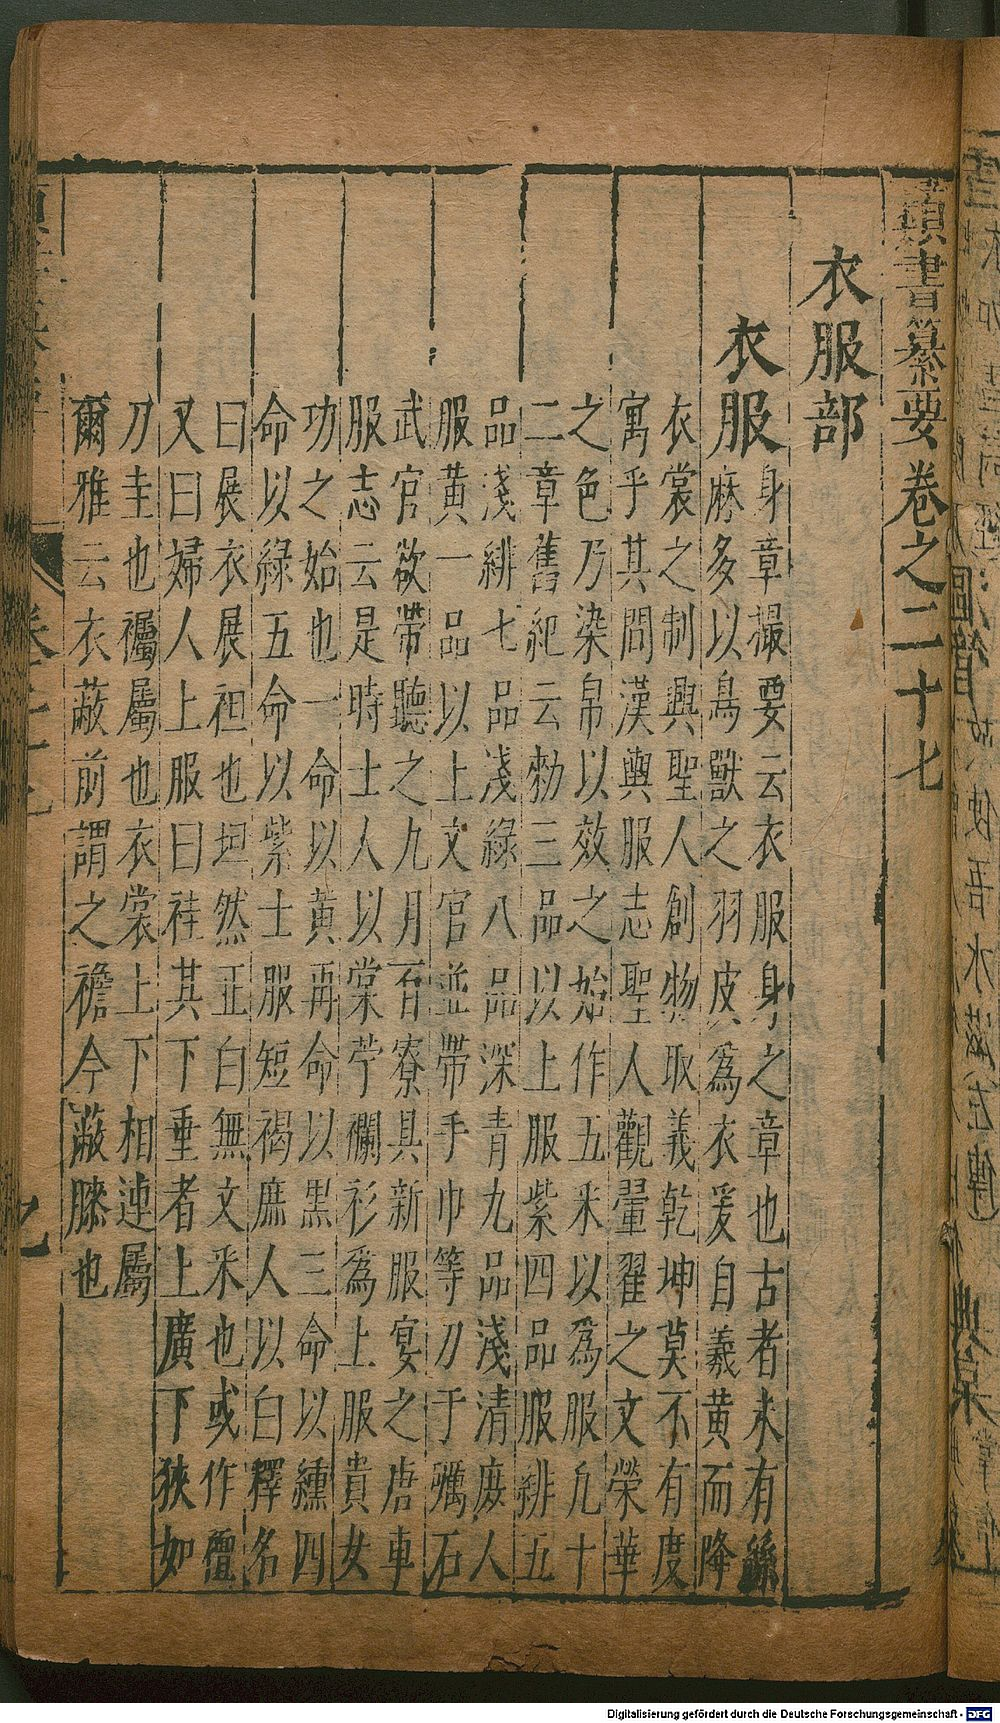 類書纂要卷之二十七
衣服部
衣服
身章撮要云衣服身之章也古者未有絲
麻多以鳥獸之羽皮爲衣爰自羲黄而降
衣裳之制興聖人創物取義乾坤莫不有度
寓乎其問漢輿服志聖人觀翬翟之文榮華
之色乃染帛以效之始作五采以爲服凢十
二章舊紀云勑三品以上服紫四品服緋五
品淺緋七品淺緑八品深青九品淺清庻人
服黄一品以上文官並帶手巾等刀于礪石
武官欲帶聽之九月百寮具新服宴之唐車
服志云是時士人以棠苧襴衫爲上服貴女
功之始也一命以黄再命以黒三命以纁四
命以緑五命以紫士服短褐庶人以白釋名
曰展衣展袒也坦然正白無文釆也或作襢
又曰婦人上服曰袿其下垂者上廣下狹如
刀圭也襡屬也衣裳上下相連屬
爾雅云衣蔽前謂之襜今蔽膝也
Digitalisierung gefördert durch die Deutsche Forschungsgemeinschaft - DFG